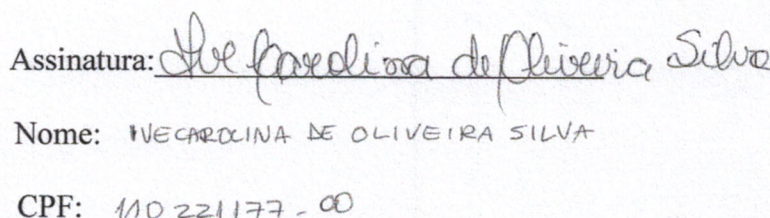 Assinatura: Ive Carolina de Oliveira Silva
Nome: IVECAROLINA DE OLIVEIRA SILVA
CPF: 110221177-00